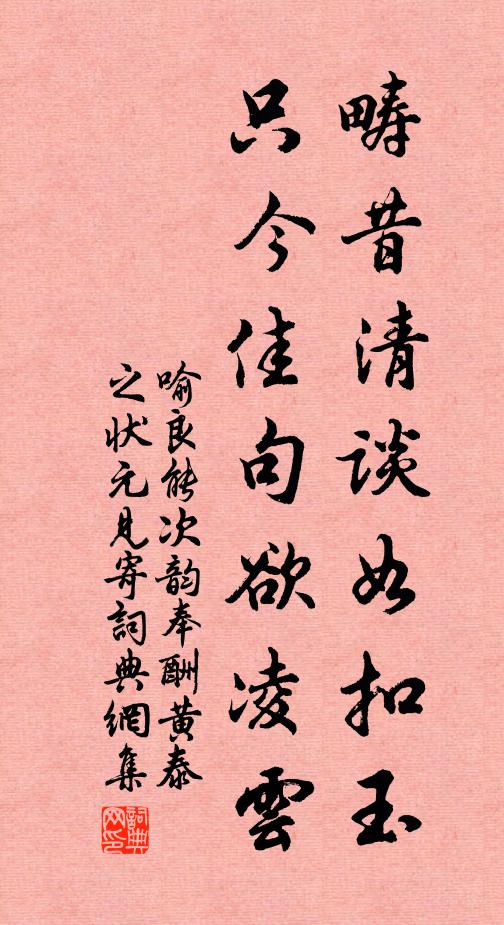 畴昔清谈如扣玉
只今佳句欲凌雲
喻良能次韵奉酬黄泰
之状元見寄詞典網集
詞典网印